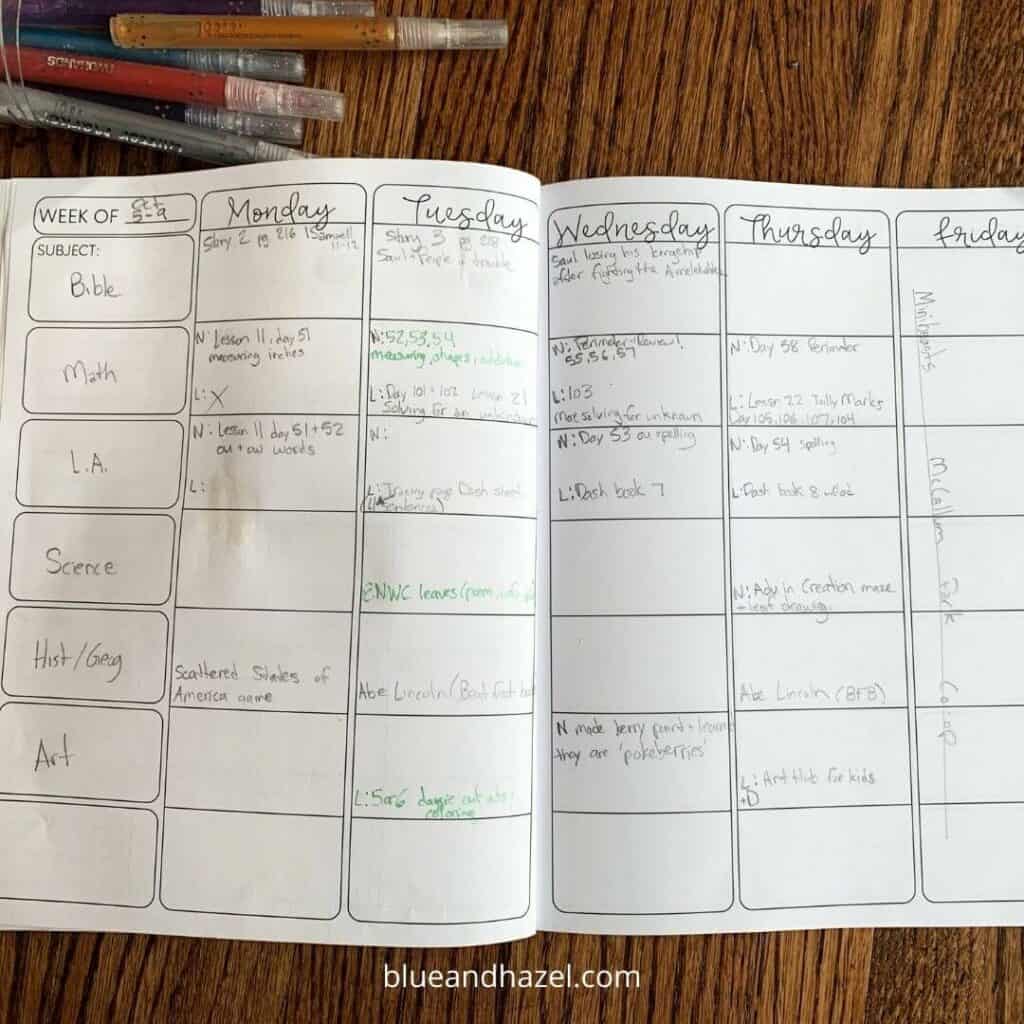 WEEK OF Oct 5-9
Monday
Tuesday
Wednesday
Thursday
Friday
SUBJECT:
Bible
Story 2 pg 216 1 Samuel
11-12
Story 3 pg 218
Saul + People trouble
Saul losing his kingship
after fighting the
Math
N: Lesson 11, day 51
measuring inches
L: X
N: 52, 53, 54
measuring, shapes,
L: Day 101 + 102 Lesson 21
Solving for an unknown
N: Perimeter Review!
55, 56, 57
L: 103
More solving for unknown
N: Day 58 Perimeter
L: Lesson 22 Tally Marks
Day 105, 106, 107, 104
L.A.
N: Lesson 11 day 51 + 52
ou + ow words
L:
N:
L: page Dash sheet
sentences)
N: Day 53 ou spelling
L: Dash book 7
N: Day 54 spelling
L: Dash book 8
Science
NWC leaves (poem,
N: Adv in Creation maze
+ leaf drawing
Hist/Geog
Scattered States of
America game
Abe Lincoln/
Abe Lincoln (BFB)
Art
L: 5 or 6 cut outs
coloring
N made berry paint + learned
they are 'pokeberries'
L: Art Hub for kids
+D
McCallum Park Co-op
blueandhazel.com